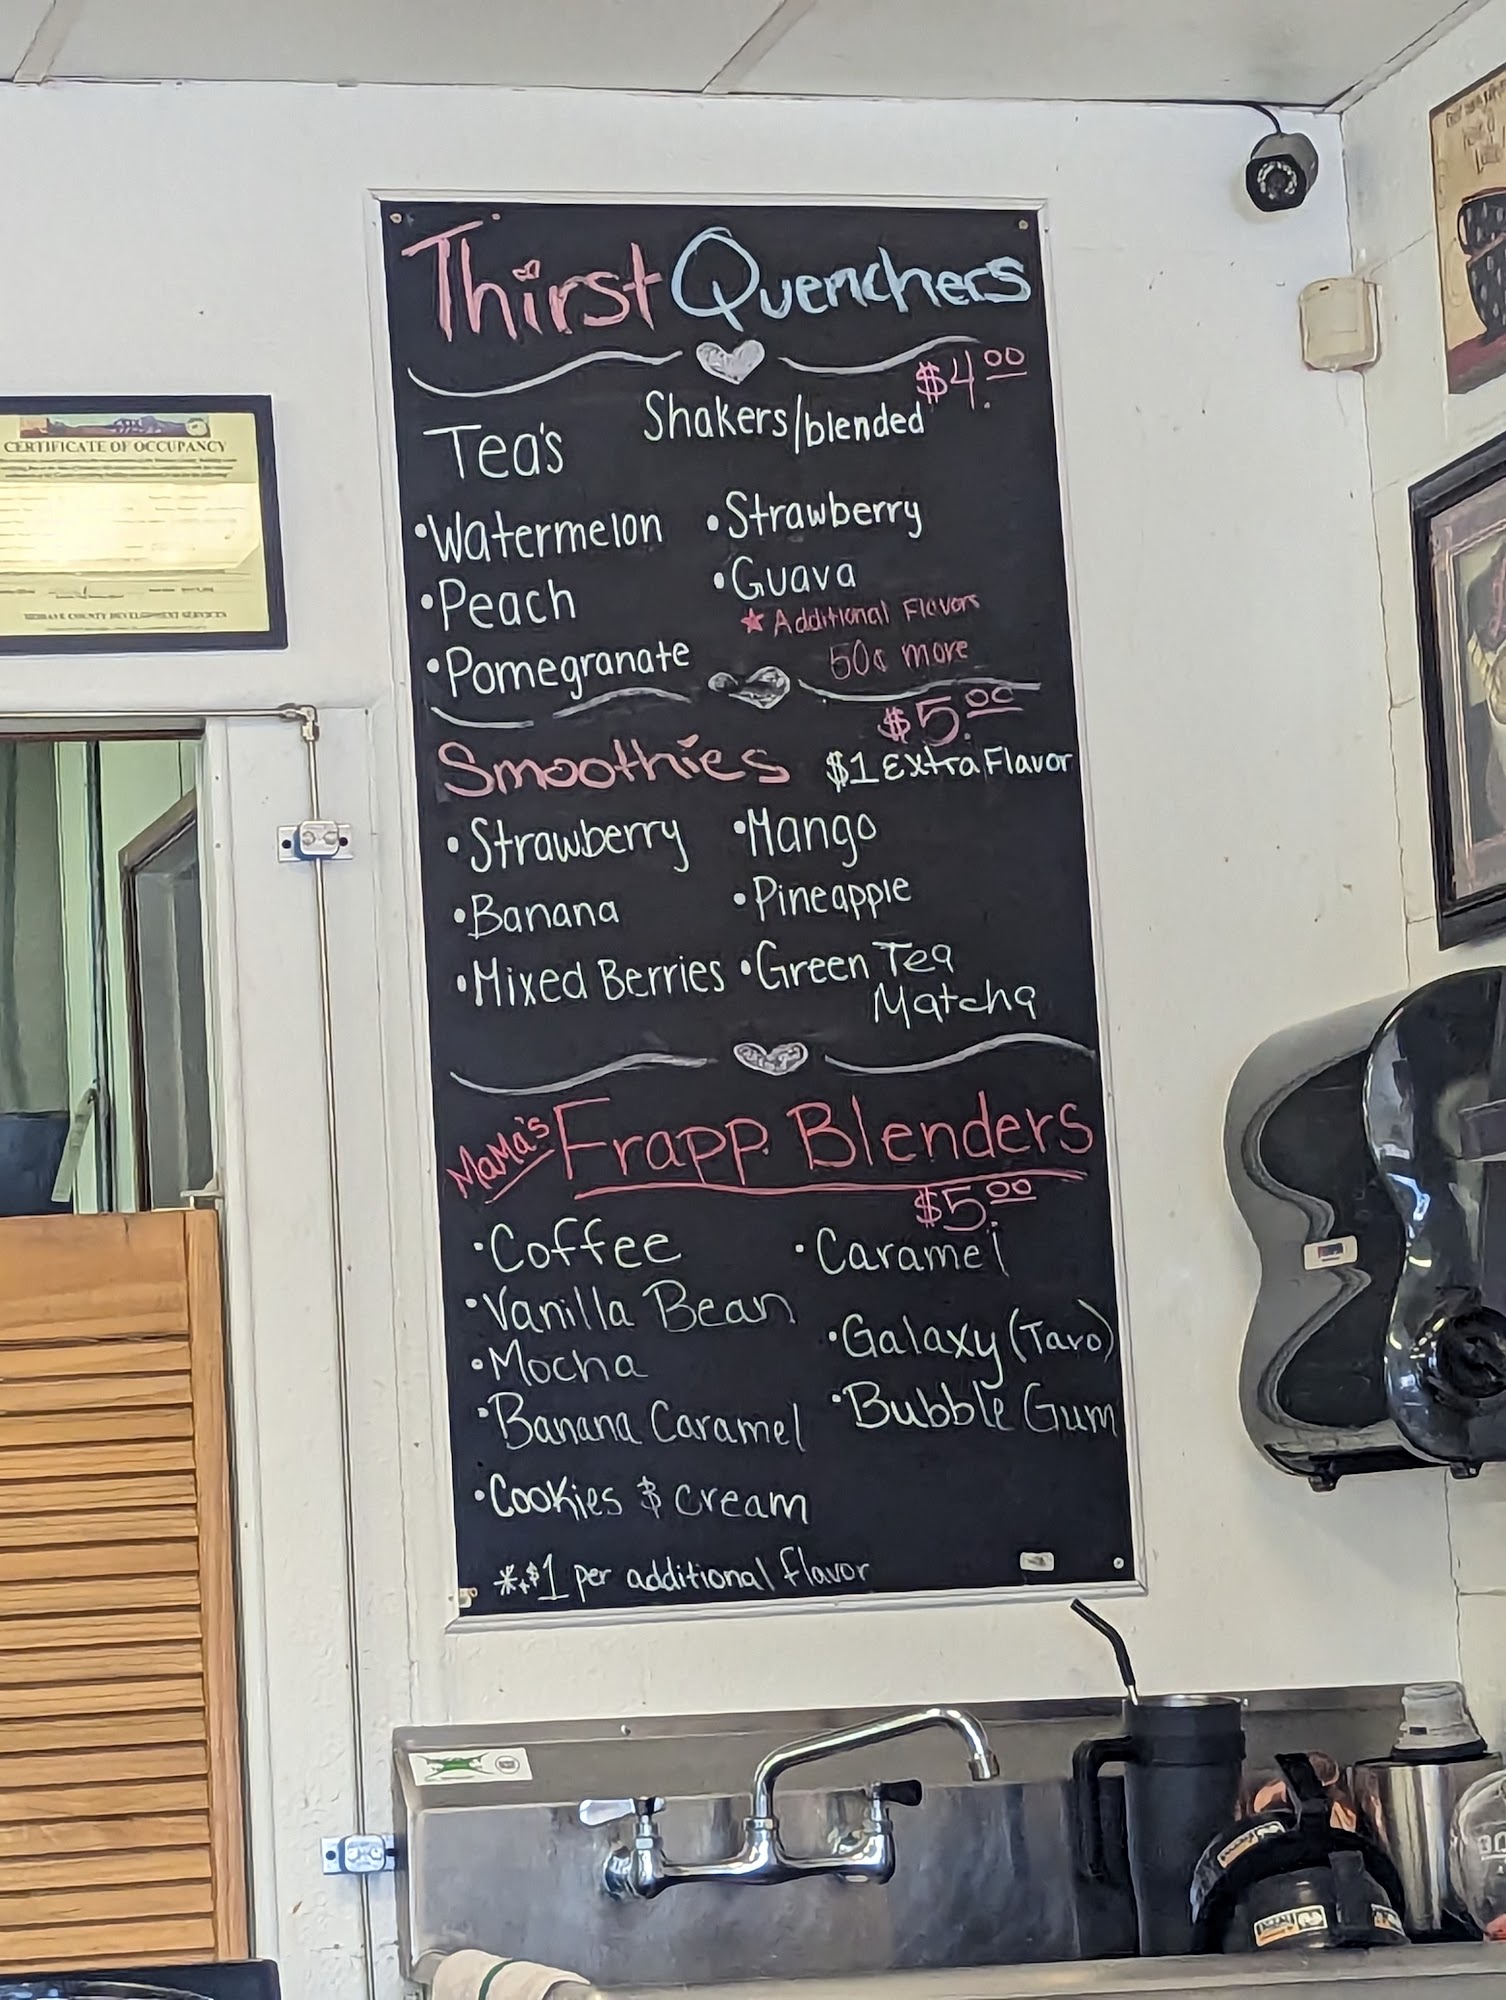 Thirst Quenchers
$4.00
Tea's
Shakers/blended
•Watermelon
•Peach
•Pomegranate
•Strawberry
•Guava
★ Additional Flavors
50¢ more
Smoothies
$5.00
$1 Extra Flavor
•Strawberry
•Banana
•Mixed Berries
•Mango
•Pineapple
•Green Tea
Matcha
MaMa's Frapp Blenders
$5.00
•Coffee
•Vanilla Bean
•Mocha
•Banana Caramel
•Cookies & cream
•Caramel
•Galaxy (Taro)
•Bubble Gum
*+$1 per additional flavor
CERTIFICATE OF OCCUPANCY
COUNTY DEVELOPMENT SERVICES